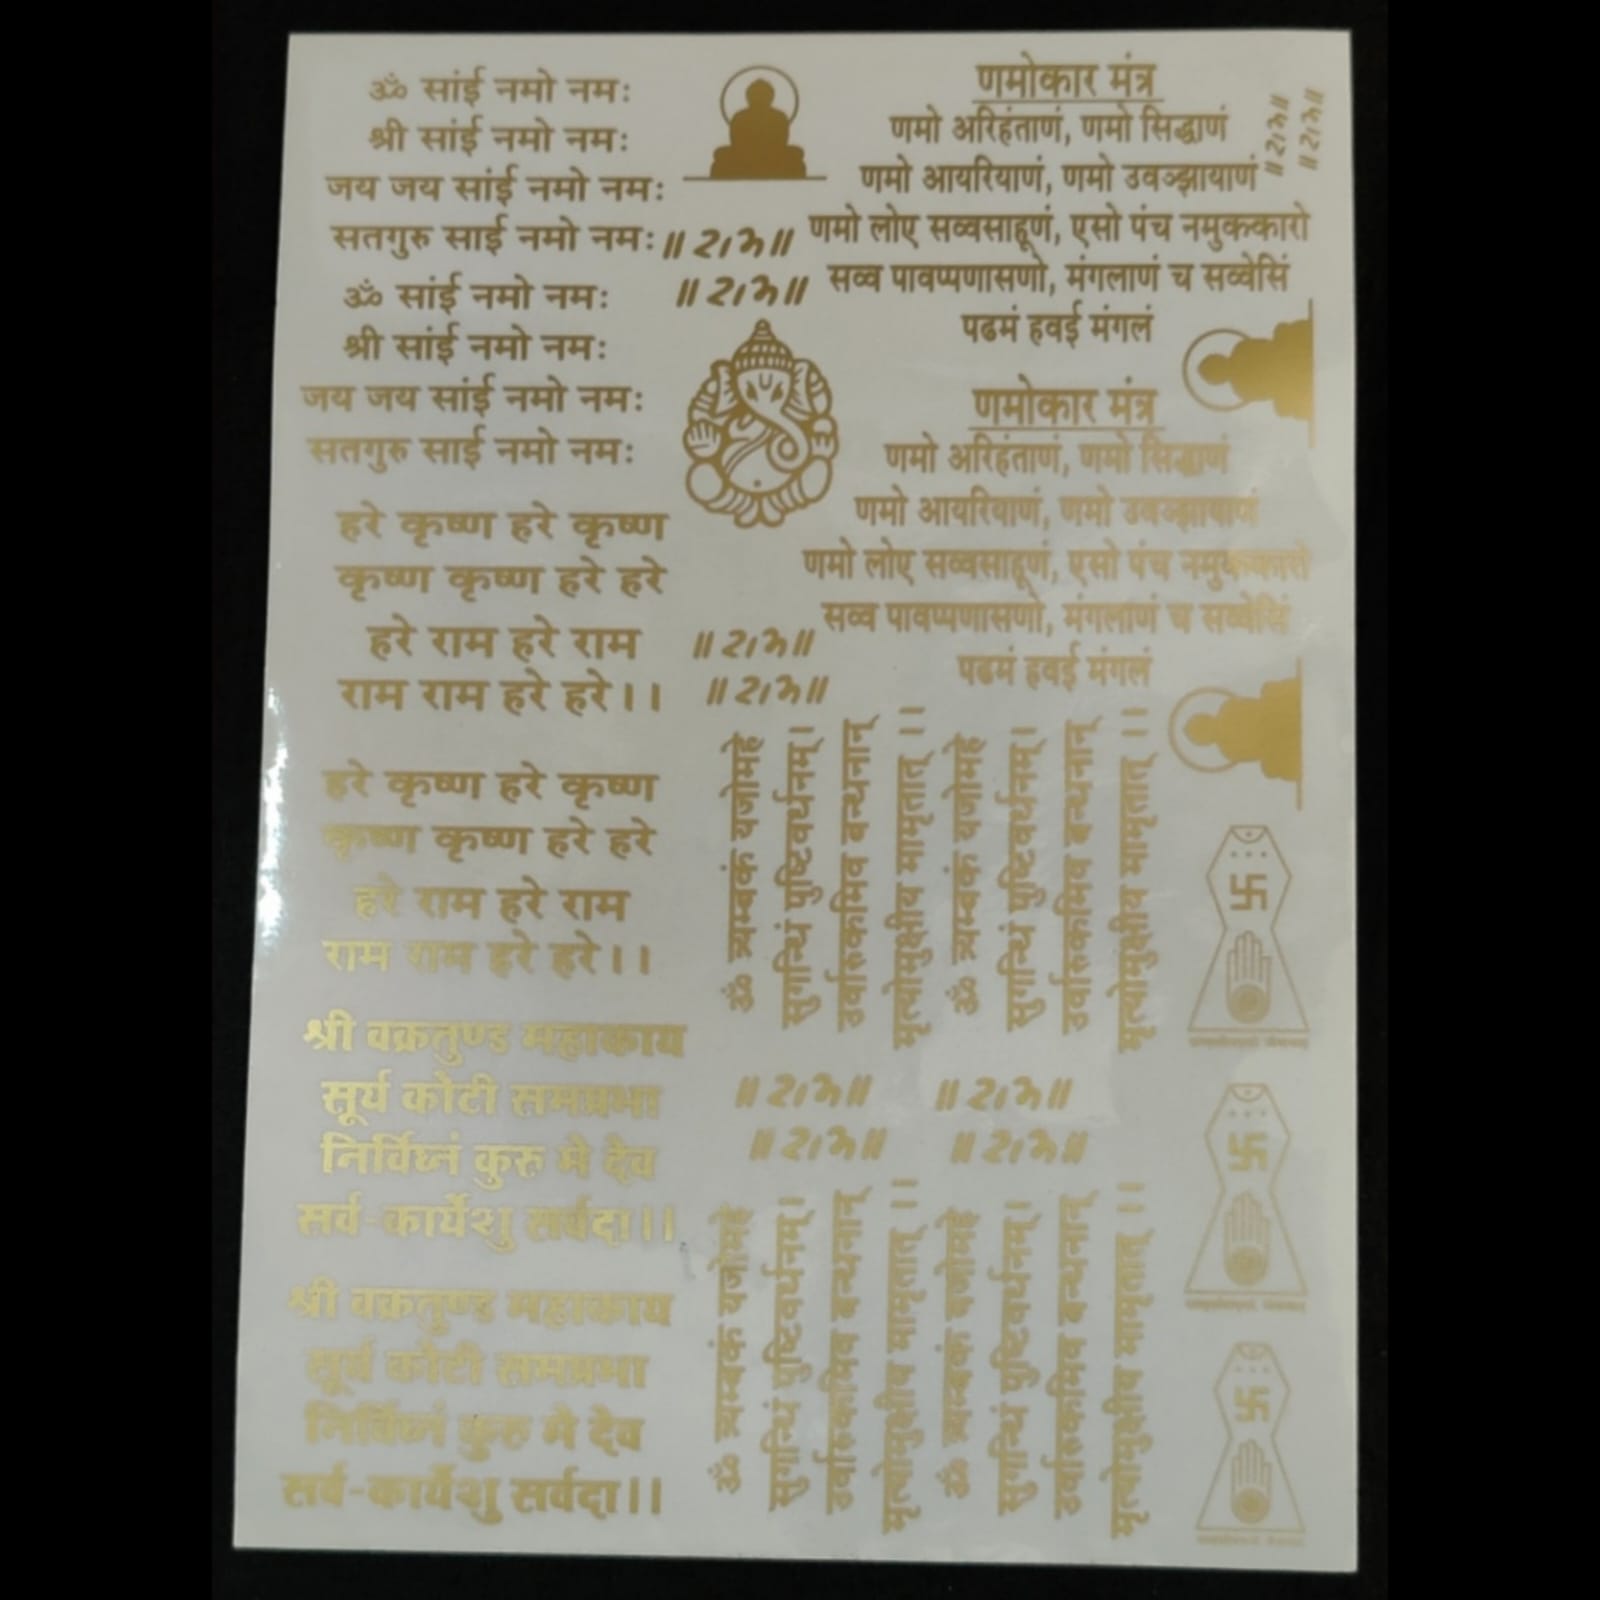 ॐ सांई नमो नमः
श्री सांई नमो नमः
जय जय सांई नमो नमः
सतगुरु साई नमो नमः
ॐ सांई नमो नमः
श्री सांई नमो नमः
जय जय सांई नमो नमः
सतगुरु साई नमो नमः
हरे कृष्ण हरे कृष्ण
कृष्ण कृष्ण हरे हरे
हरे राम हरे राम
राम राम हरे हरे।।
हरे कृष्ण हरे कृष्ण
कृष्ण कृष्ण हरे हरे
हरे राम हरे राम
राम राम हरे हरे।।
श्री वक्रतुण्ड महाकाय
सूर्य कोटी समप्रभा
निर्विघ्नं कुरु मे देव
सर्व-कार्येशु सर्वदा।।
श्री वक्रतुण्ड महाकाय
सूर्य कोटी समप्रभा
निर्विघ्नं कुरु मे देव
सर्व-कार्येशु सर्वदा।।
॥राम॥
॥राम॥
॥राम॥
॥राम॥
णमोकार मंत्र
णमो अरिहंताणं, णमो सिद्धाणं
णमो आयरियाणं, णमो उवज्झायाणं
णमो लोए सव्वसाहूणं, एसो पंच नमुक्कारो
सव्व पावप्पणासणो, मंगलाणं च सव्वेसिं
पढमं हवई मंगलं
॥राम॥
॥राम॥
णमोकार मंत्र
णमो अरिहंताणं, णमो सिद्धाणं
णमो आयरियाणं, णमो उवज्झायाणं
णमो लोए सव्वसाहूणं, एसो पंच नमुक्कारो
सव्व पावप्पणासणो, मंगलाणं च सव्वेसिं
पढमं हवई मंगलं
ॐ त्र्यम्बकं यजोमहे
सुगन्धिं पुष्टिवर्धनम्।
उर्वारुकमिव बन्धनान्
मृत्योमुक्षीय मामृतात् ।।
ॐ त्र्यम्बकं यजोमहे
सुगन्धिं पुष्टिवर्धनम्।
उर्वारुकमिव बन्धनान्
मृत्योमुक्षीय मामृतात् ।।
॥राम॥ ॥राम॥
॥राम॥ ॥राम॥
ॐ त्र्यम्बकं यजोमहे
सुगन्धिं पुष्टिवर्धनम्।
उर्वारुकमिव बन्धनान्
मृत्योमुक्षीय मामृतात् ।।
ॐ त्र्यम्बकं यजोमहे
सुगन्धिं पुष्टिवर्धनम्।
उर्वारुकमिव बन्धनान्
मृत्योमुक्षीय मामृतात् ।।